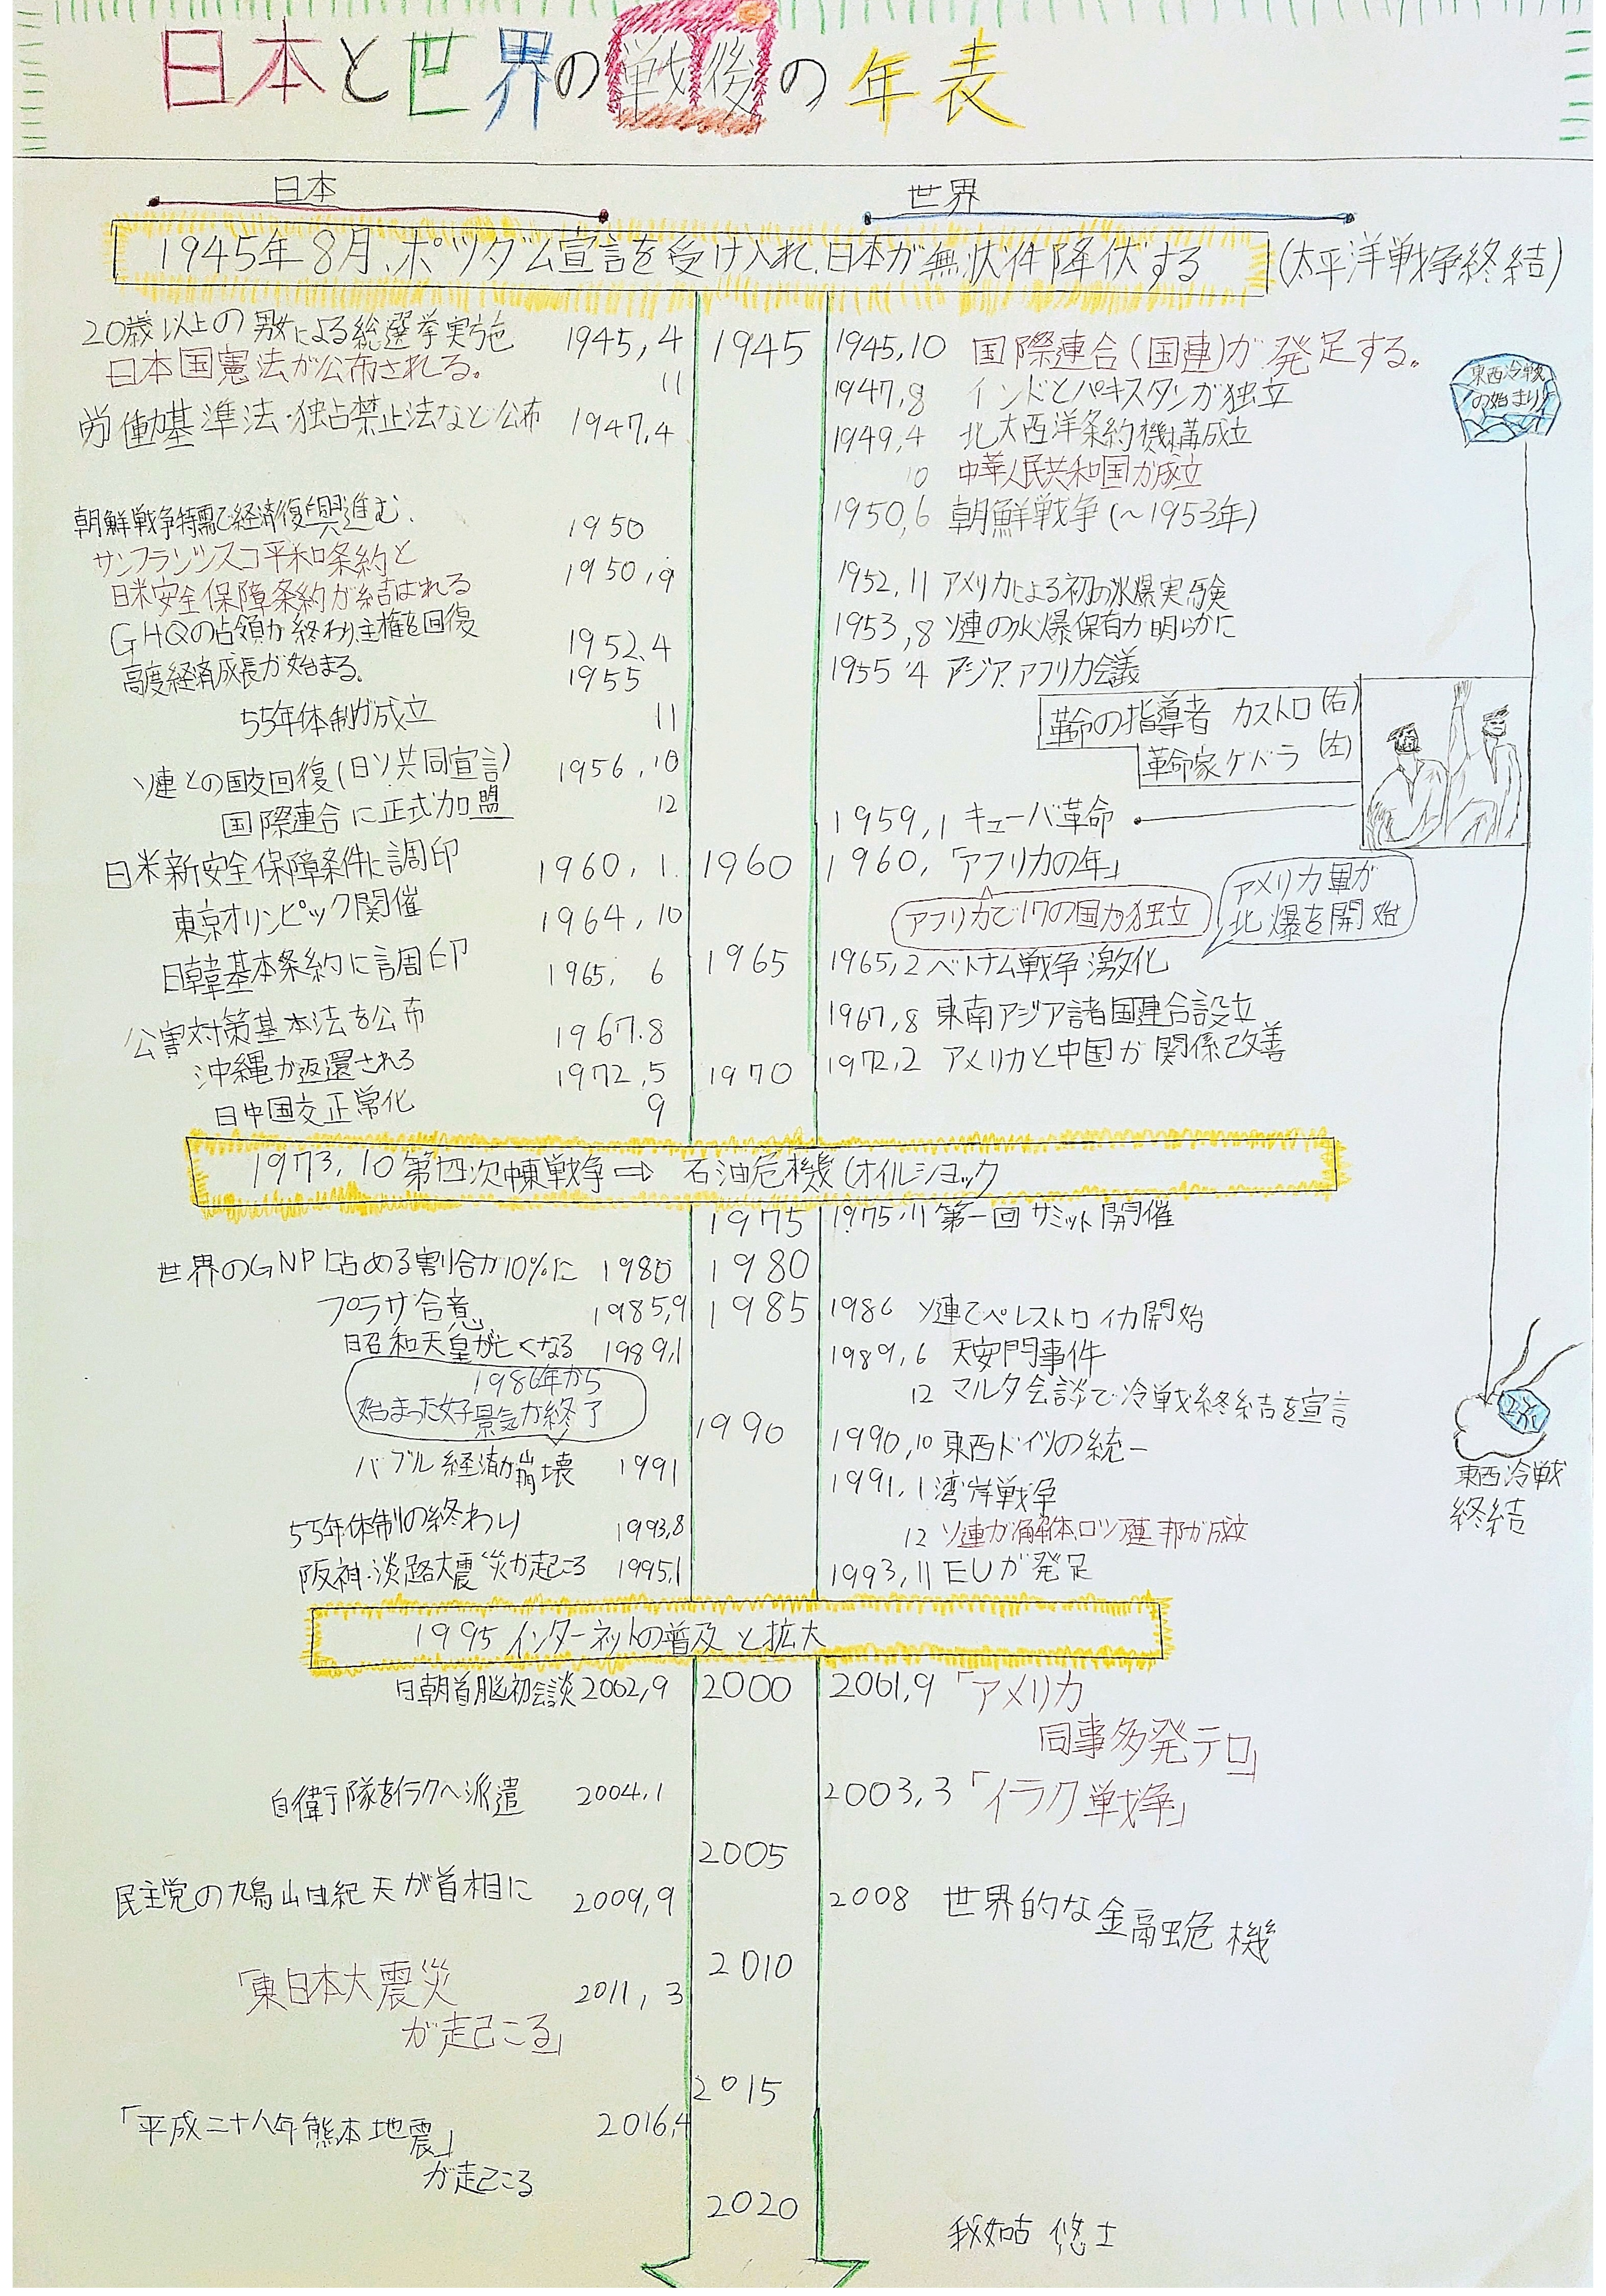 日本と世界の戦後の年表
日本
世界
1945年8月、ポツダム宣言を受け入れ、日本が無状件降伏する
(太平洋戦争終結)
20歳以上の男女による総選挙実施 1945,4
日本国憲法が公布される。 11
労働基準法・独占禁止法など公布 1947,4
朝鮮戦争特需で経済復興進む. 1950
サンフランシスコ平和条約と
日米安全保障条約が結ばれる 1950,9
GHQの占領が終わり、主権を回復 1952,4
高度経済成長が始まる。 1955
55年体制が成立 11
ソ連との国交回復(日ソ共同宣言) 1956,10
国際連合に正式加盟 12
日米新安全保障条件に調印 1960,1.
東京オリンピック開催 1964,10
日韓基本条約に調印 1965, 6
公害対策基本法を公布 1967.8
沖縄が返還される 1972,5
日中国交正常化 9
1945
1960
1965
1970
1945,10 国際連合(国連)が発足する。
1947,8 インドとパキスタンが独立
1949,4 北大西洋条約機構成立
10 中華人民共和国が成立
1950,6 朝鮮戦争(~1953年)
1952,11 アメリカによる初の水爆実験
1953,8 ソ連の水爆保有が明らかに
1955,4 アジア.アフリカ会議
革命の指導者 カストロ(右)
革命家ゲバラ(左)
1959,1 キューバ革命
1960,「アフリカの年」
アフリカで17の国が独立
アメリカ軍が
北爆を開始
1965,2 ベトナム戦争激化
1967,8 東南アジア諸国連合設立
1972,2 アメリカと中国が関係改善
東西冷戦
の始まり!
1973,10 第四次中東戦争⇨ 石油危機(オイルショック
1975
1980
1985
1990
世界のGNPに占める割合が10%に 1980
プラザ合意 1985,9
昭和天皇が亡くなる 1989,1
1986年から
始まった好景気が終了
バブル経済が崩壊 1991
55年体制の終わり 1993,8
阪神・淡路大震災が起こる 1995,1
1975,11 第一回サミット開催
1986 ソ連でペレストロイカ開始
1989,6 天安門事件
12 マルタ会談で冷戦終結を宣言
1990,10 東西ドイツの統一
1991,1 湾岸戦争
12 ソ連が解体、ロシア連邦が成立
1993,11 EUが発足
東西冷戦
終結
1995 インターネットの普及と拡大
日朝首脳初会談 2002,9
自衛隊をイラクへ派遣 2004,1
民主党の鳩山由紀夫が首相に 2009,9
「東日本大震災
が起こる」 2011,3
「平成二十八年熊本地震」
が起こる 2016,4
2000
2005
2010
2015
2020
2001,9「アメリカ
同事多発テロ」
2003,3「イラク戦争」
2008 世界的な金融危機
我如古 悠士